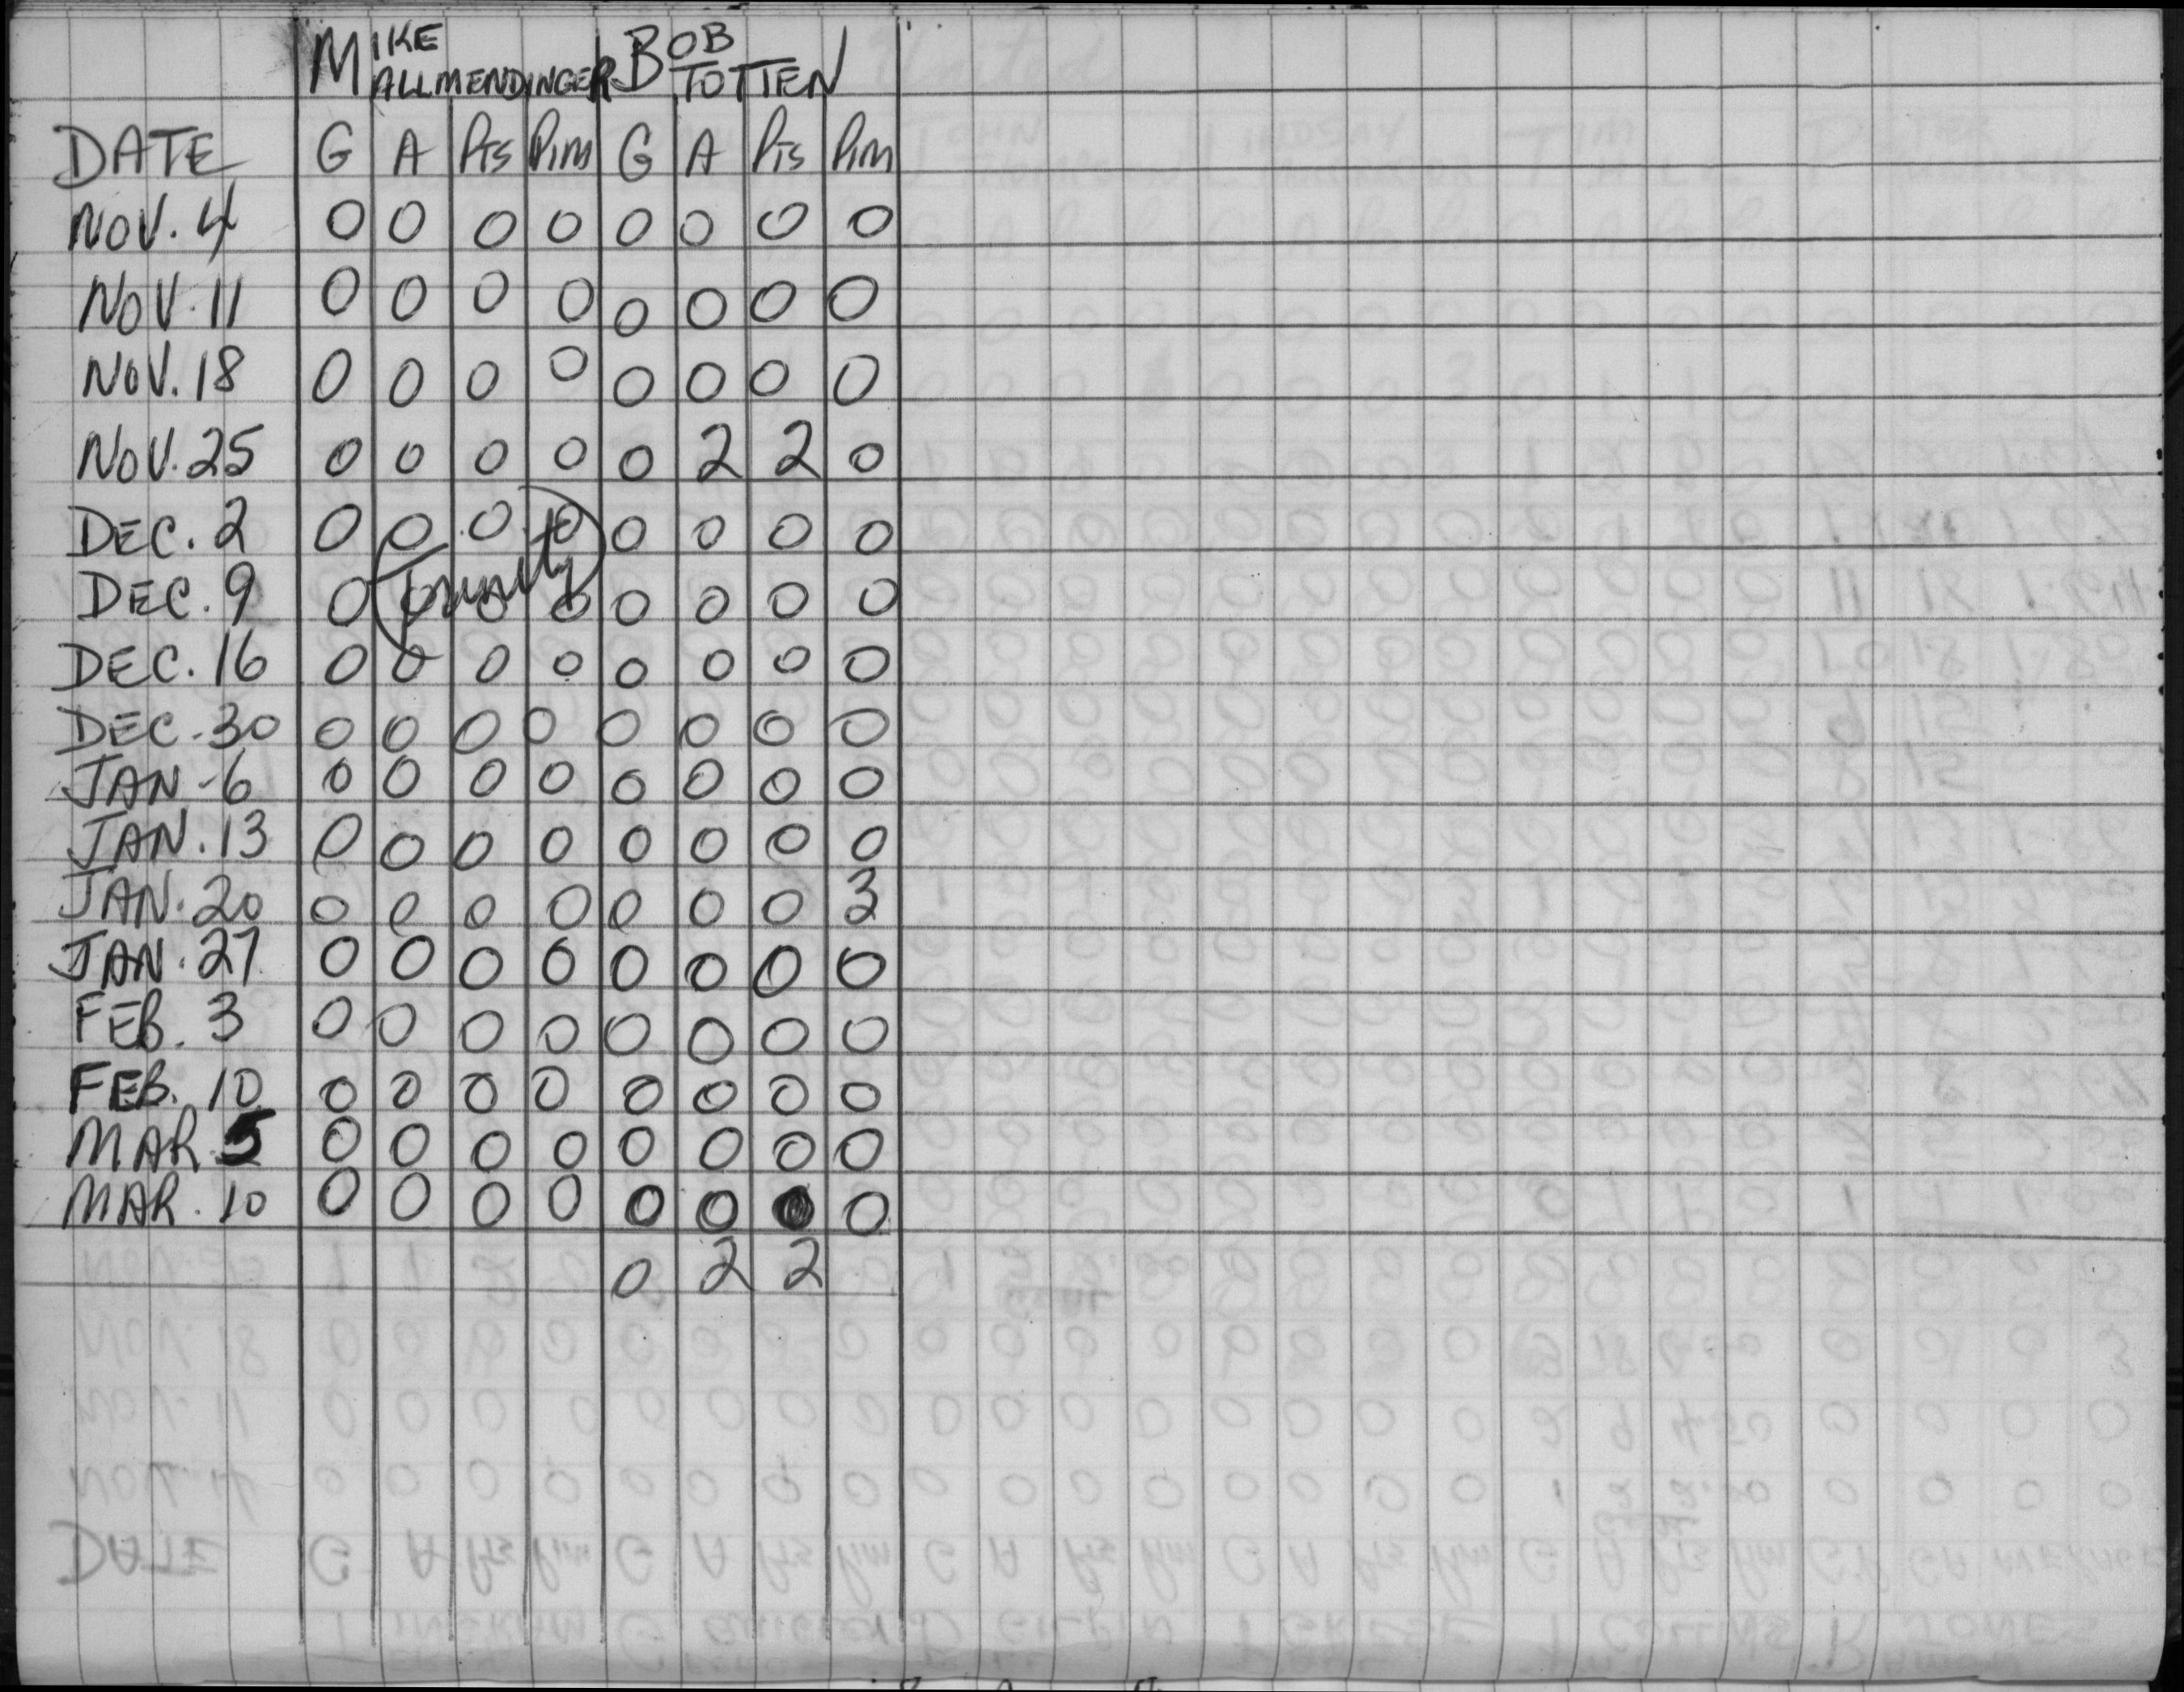 MIKE ALLMENDINGER BOB TOTTEN
DATE G A Pts Pim G A Pts Pim
NOV. 4 0 0 0 0 0 0 0 0
NOV. 11 0 0 0 0 0 0 0 0
NOV. 18 0 0 0 0 0 0 0 0
NOV. 25 0 0 0 0 0 2 2 0
DEC. 2 0 0 0 0 0 0 0 0
DEC. 9 0 0 0 0 0 0 0 0
DEC. 16 0 0 0 0 0 0 0 0
DEC. 30 0 0 0 0 0 0 0 0
JAN - 6 0 0 0 0 0 0 0 0
JAN. 13 0 0 0 0 0 0 0 0
JAN. 20 0 0 0 0 0 0 0 3
JAN. 27 0 0 0 0 0 0 0 0
FEB. 3 0 0 0 0 0 0 0 0
FEB. 10 0 0 0 0 0 0 0 0
MAR 5 0 0 0 0 0 0 0 0
MAR. 10 0 0 0 0 0 0 0 0
0 2 2